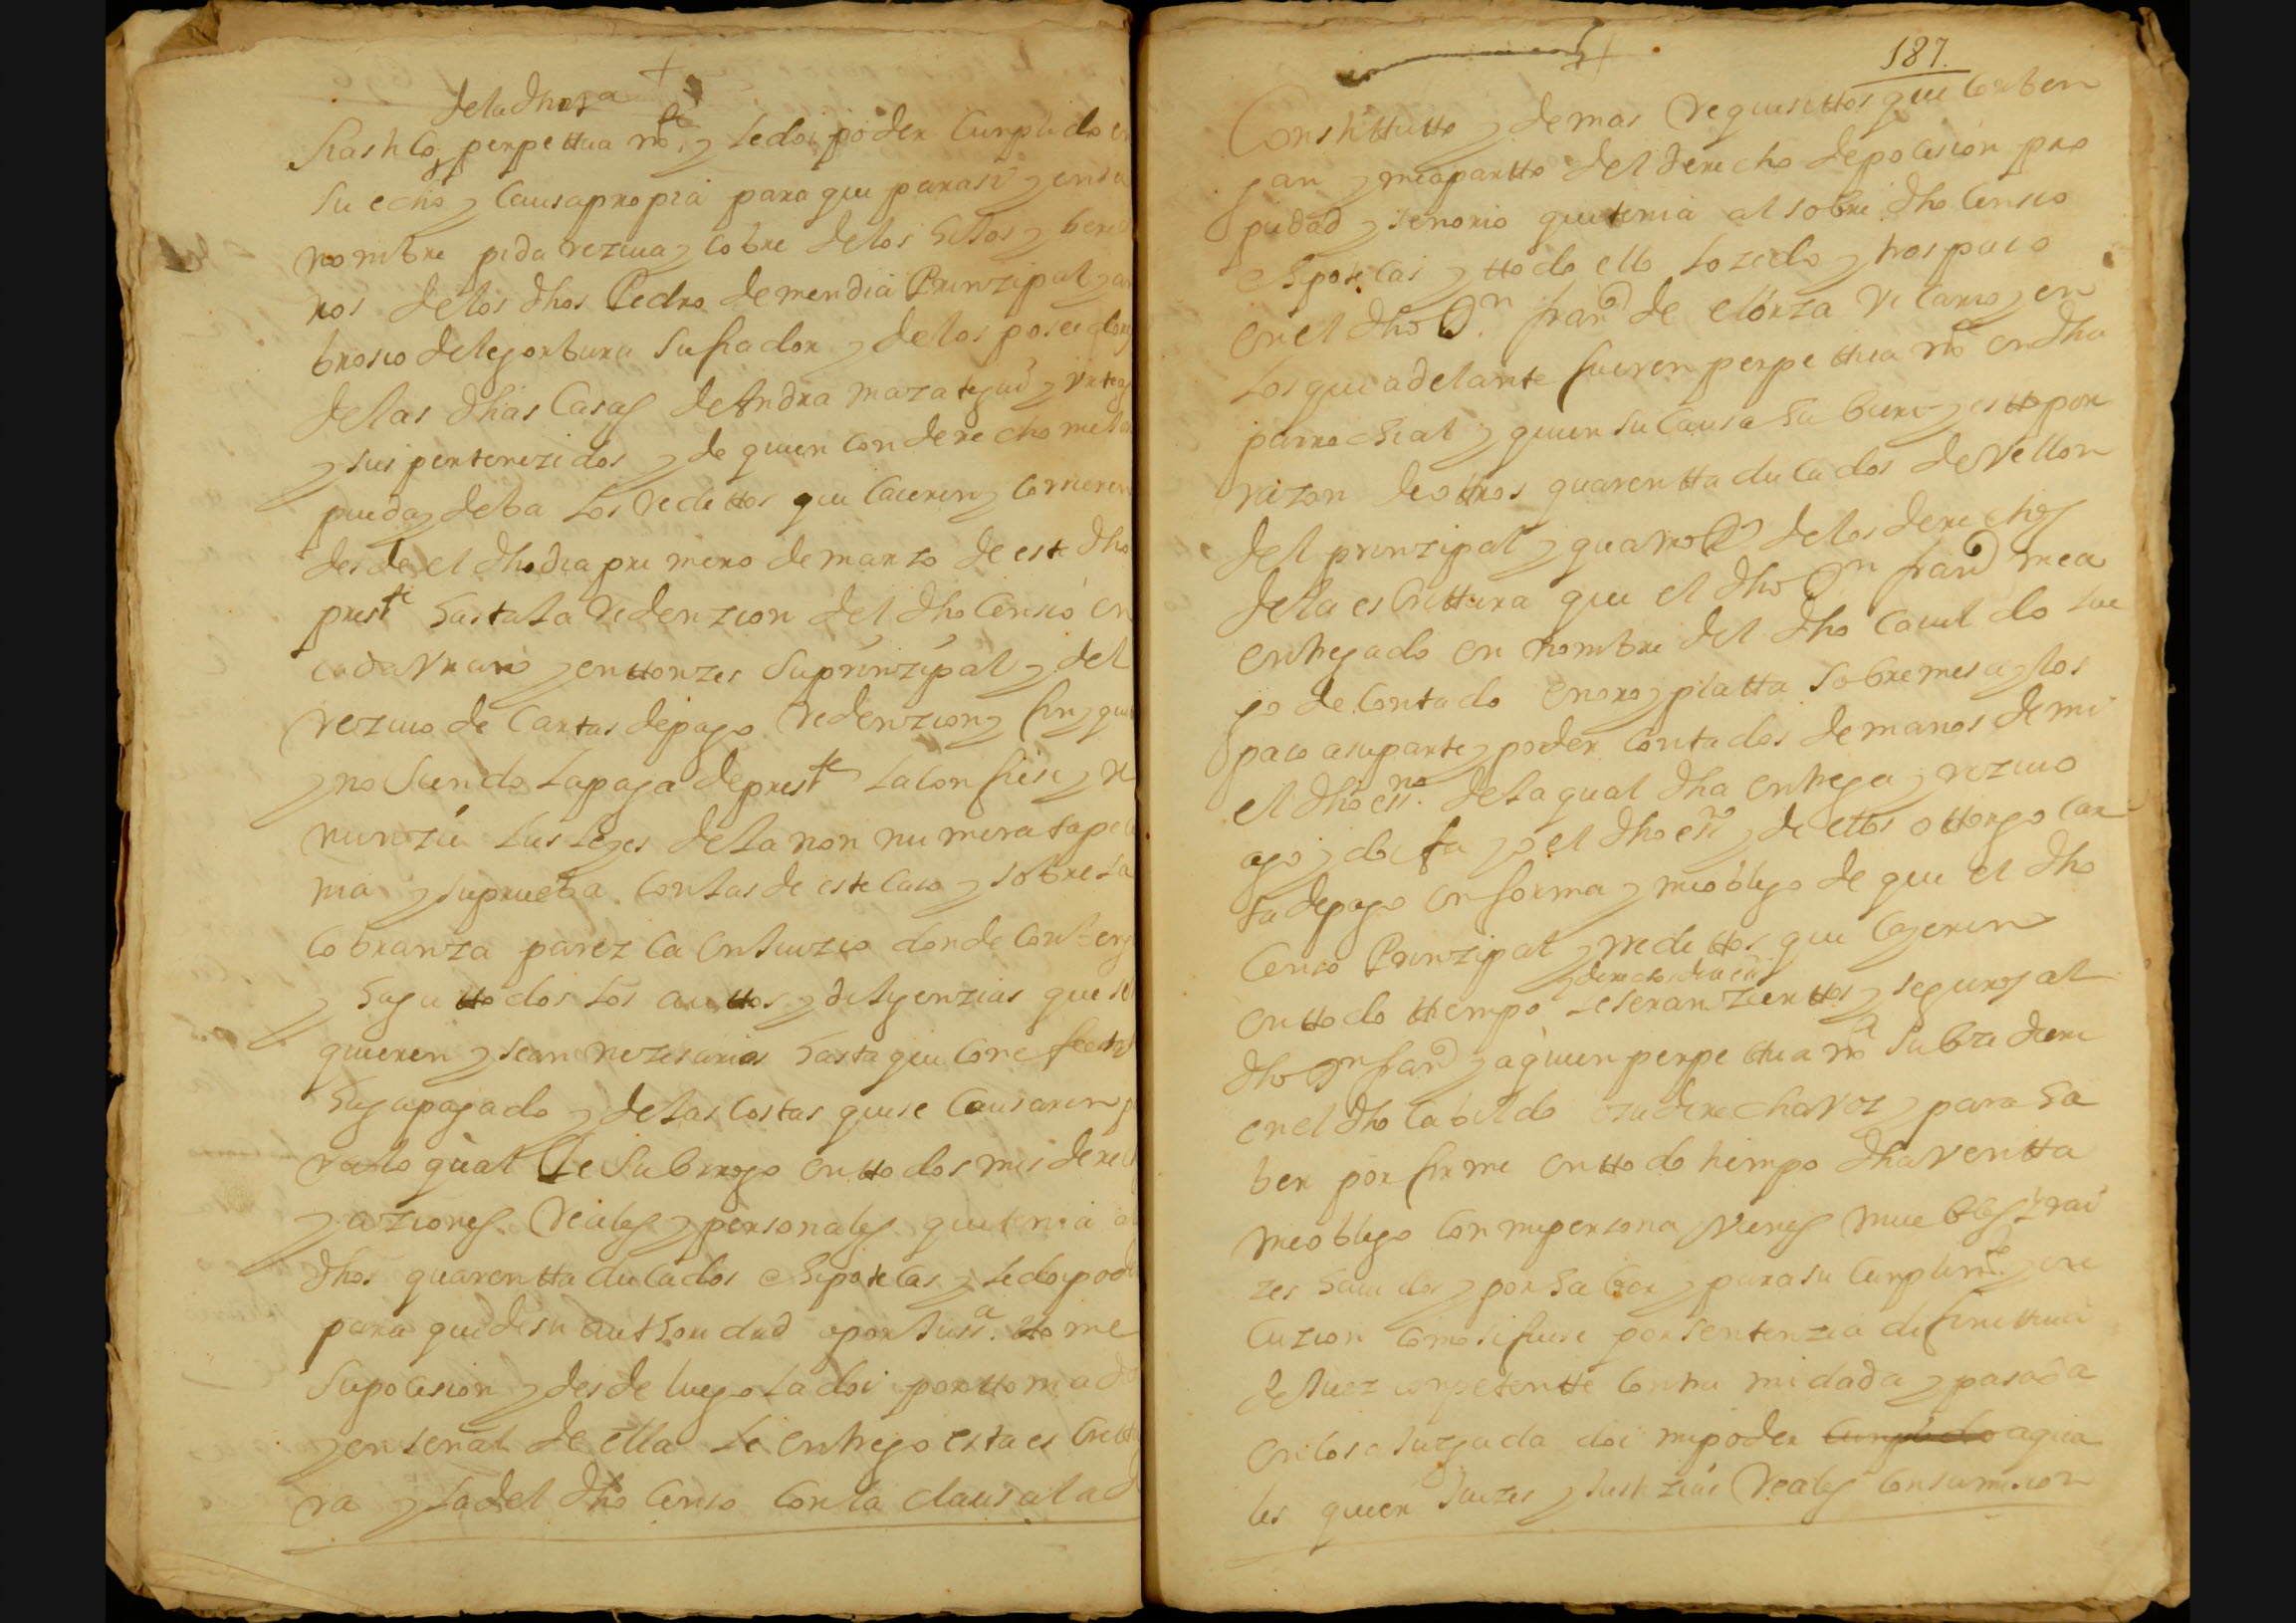 de la dha yga
siastico perpettua mte y le doi poder cunplido en
su echo y causa propia para que para si y en su
nombre pida reziua y cobre de los hellos y bene
nos de los dhos Pedro de mendia Prinzipal y an
brosio de lejorburu su fiador y de los poseedores
de las dhas Casas de Andra mazategui y
y sus pertenezidos y de quien con derecho me
pueda y deba los redittos que caieren y corrieren
desde el dho dia primero de marzo de este dho
prestte hasta la redenzion del dho Censo en
cada vn año y enttonzes su prinzipal y del
reziuo de cartas de pago redenzion y fin y qui
y no siendo la paga de prestte la confiese y re
nunzie las leyes de la non numerata pecu
nia y su prueba con las de este caso y sobre la
cobranza parezca en Juizio donde conbeng
y haga ttodos los auttos y diligenzias que se re
quieren y sean nezesarias hasta que con efectto
haya pagado y de las costas que se causaren pa
ra lo qual le subrrogo en ttodos mis derech
y aziones reales y personales que tenia a
dhos quarentta ducados e hipotecas y le doi pode
para que de su authoridad o por Jussa tome
su posesion y desde luego la doi por ttomada
y en señal de ella le entrego esta escrittu
ra y la del dho Censo con la clausula d
187.
Constittutto y demas requisittos que conben
gan y me apartto del derecho de posesion pro
piedad y señorio que tenia al sobre dho Censo
e hipotecas y ttodo ello lo zedo y traspaso
en el dho Dn franco de elorza Vicario y en
los que adelante fueren perpettua mte en dha
parrochial y quien su causa hubiere y estto por
razon de ottros quarentta ducados de vellon
del prinzipal y quatro Rs de los derechos
de la escrittura que el dho Dn franco me a
entregado en nombre del dho cauildo lue
go de contado en oro y platta sobre mesa y los
paso a su parte y poder contados de manos de mi
el dho essno de la qual dha entrega y reziuo
ago y doi fee yo el dho esno y de ellos ottorgo car
ta de pago en forma y me obligo de que el dho
Censo Prinzipal y redittos que cayeren
y derechos de la esc
en ttodo ttiempo le seran zierttos y seguros al
dho Dn franco y a quien perpettua mte subzediere
en el dho Cabildo o su derecha voz y para ha
ber por firme en ttodo tiempo dha ventta
me obligo con mi persona y vienes muebles y rai
zes hauidos y por haber y para su cunplimto y exe
cuzion como si fuese por sentenzia difinittiua
de Juez conpetentte contra mi dada y pasada
en cosa Juzgada doi mi poder cunplido a qua
les quier Juezes y Justizias reales con sumision